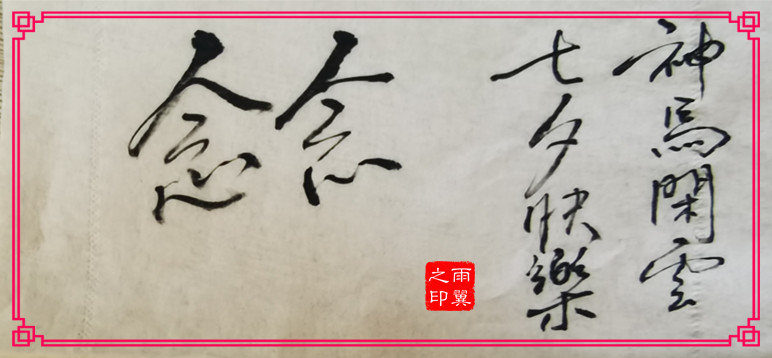 神馬閑雲
七夕快樂
念念
雨翼
之印